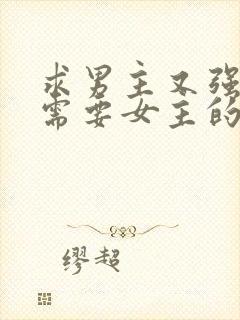 求男主又强
需要女主的
缪超